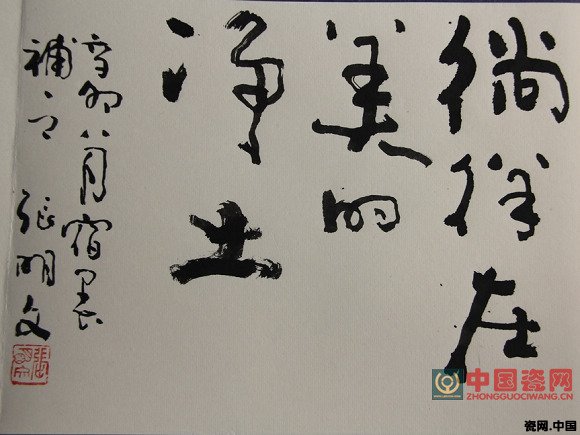 徜徉在
美的
净土
辛卯八月宿墨
補之 张明文
中国瓷网
ZHONGGUOCIWANG.CN
瓷网.中国